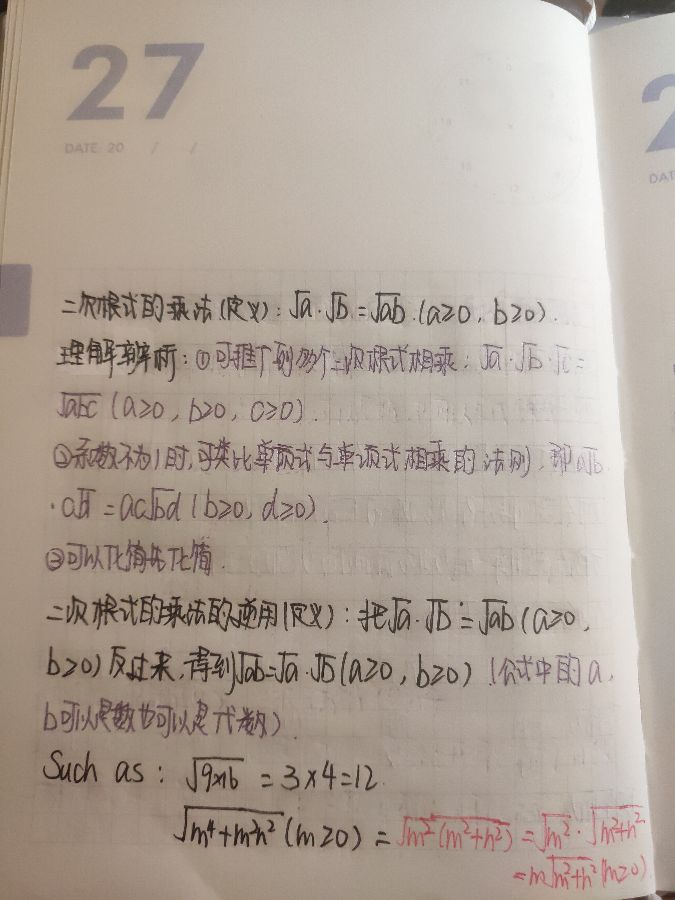 27
DATE: 20 / /
DAT
二次根式的乘法(定义): √a·√b = √ab (a≥0, b≥0).
理解辨析: ①可推广到多个二次根式相乘: √a·√b·√c =
√abc (a≥0, b≥0, c≥0).
②系数不为1时,可类比单项式与单项式相乘的法则, 即a√b
·c√d = ac√bd (b≥0, d≥0).
③可以化简先化简.
二次根式的乘法的逆用(定义): 把√a·√b = √ab (a≥0,
b≥0)反过来, 得到√ab=√a·√b (a≥0, b≥0) (公式中的a,
b可以是数也可以是代数)
Such as: √9×16 = 3×4=12.
√m⁴+m²n² (m≥0) = √m²(m²+n²) = √m²·√m²+n²
=m√m²+n² (m≥0)